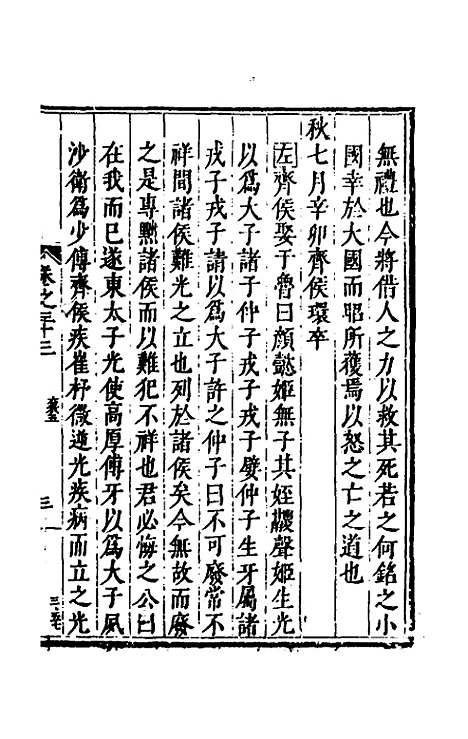 無禮也今將借人之力以救其死若之何銘之小
國幸於大國而昭所獲焉以怒之亡之道也
秋七月辛卯齊侯環卒
左齊侯娶于魯曰顏懿姬無子其姪鬷聲姬生光
以爲大子諸子仲子戎子戎子嬖仲子生牙屬諸
戎子戎子請以爲大子許之仲子曰不可廢常不
祥間諸侯難光之立也列於諸侯矣今無故而廢
之是專黜諸侯而以難犯不祥也君必悔之公曰
在我而已遂東太子光使高厚傅牙以爲大子夙
沙衛爲少傅齊侯疾崔杼微逆光疾病而立之光
卷之三十三
三